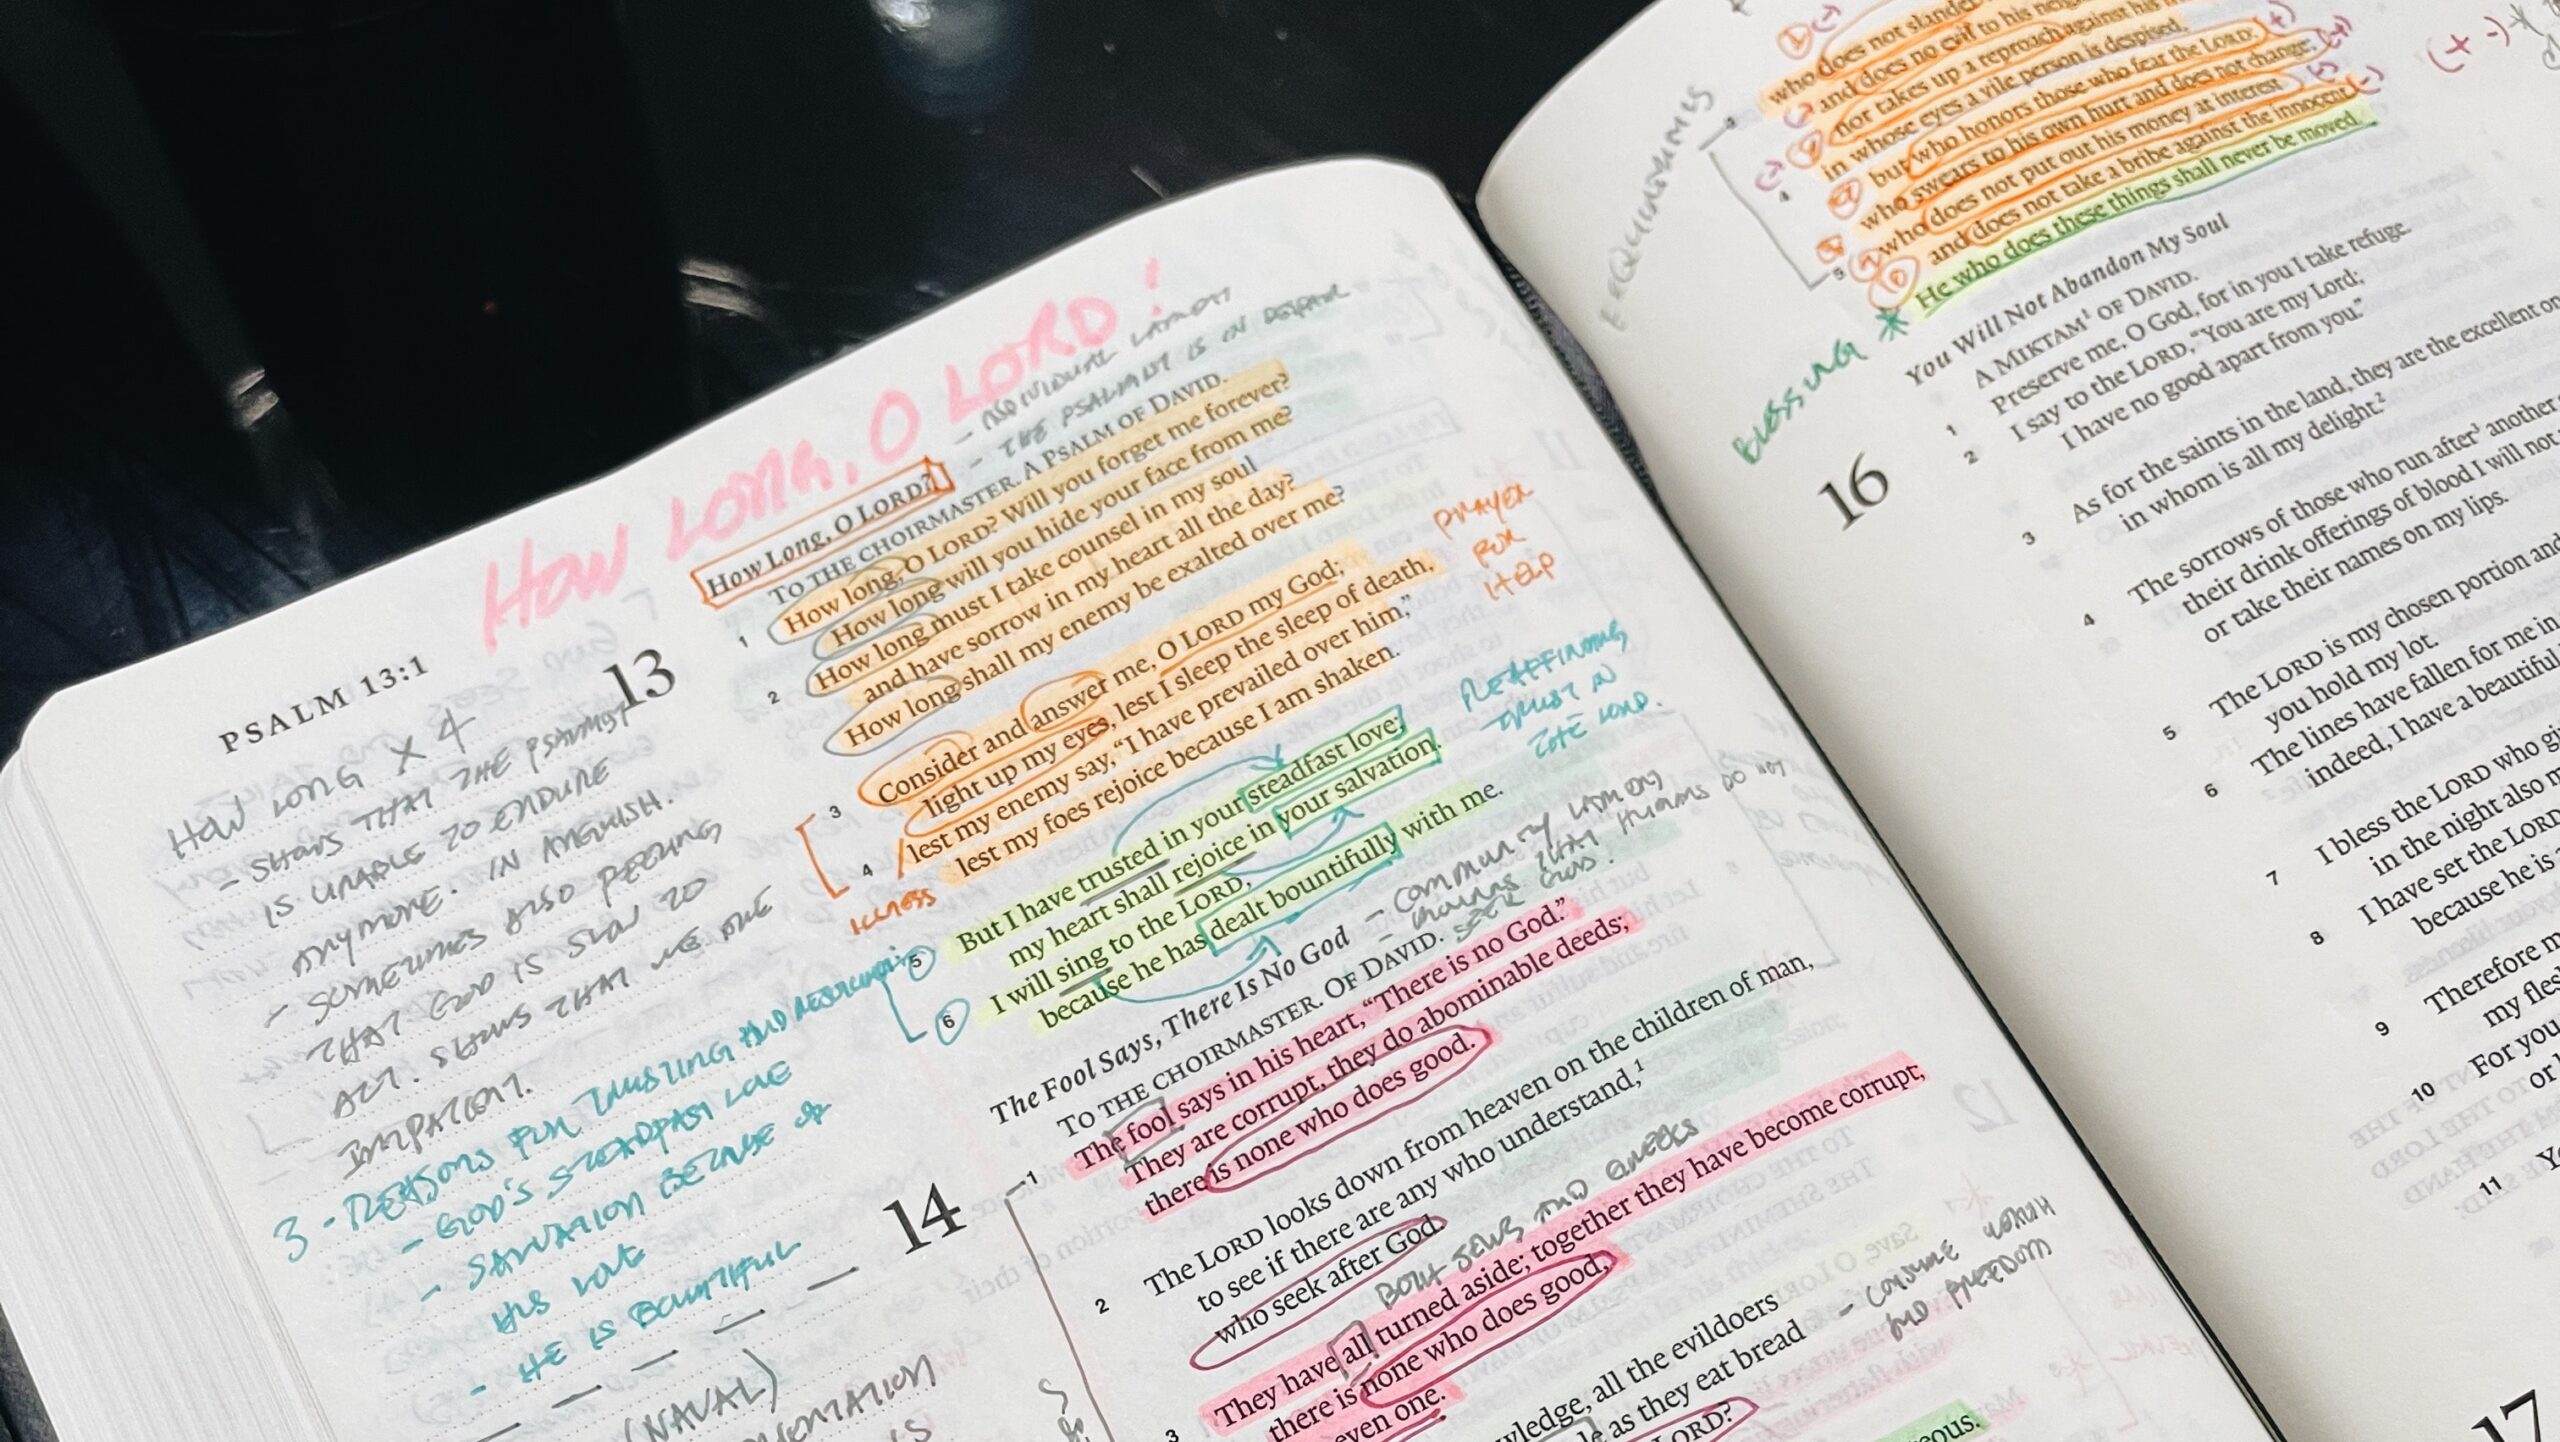 PSALM 13:1
HOW LONG, O LORD!
- INDIVIDUAL LAMENT
- THE PSALMIST IS IN DESPAIR
13
How Long, O LORD?
TO THE CHOIRMASTER. A PSALM OF DAVID.
1 How long, O LORD? Will you forget me forever?
How long will you hide your face from me?
2 How long must I take counsel in my soul
and have sorrow in my heart all the day?
How long shall my enemy be exalted over me?
PRAYER
FOR
HELP
3 Consider and answer me, O LORD my God;
light up my eyes, lest I sleep the sleep of death,
4 lest my enemy say, “I have prevailed over him,”
lest my foes rejoice because I am shaken.
ILLNESS
REAFFIRMING
TRUST IN
THE LORD.
5 But I have trusted in your steadfast love;
my heart shall rejoice in your salvation.
6 I will sing to the LORD,
because he has dealt bountifully with me.
HOW LONG × 4
- SHOWS THAT THE PSALMIST
IS UNABLE TO ENDURE
ANYMORE. IN ANGUISH.
- SOMETIMES ALSO FEELING
THAT GOD IS SLOW TO
ACT. SHOWS THAT WE ARE
IMPATIENT.
3 - REASONS FOR TRUSTING AND
- GOD'S STEADFAST LOVE
- SALVATION BECAUSE OF
HIS LOVE
- HE IS BOUNTIFUL
(NAVAL)
14
The Fool Says, There Is No God
- COMMUNITY LAMENT
- THAT HUMANS DO NOT
SEEK GOD.
TO THE CHOIRMASTER. OF DAVID.
1 The fool says in his heart, “There is no God.”
They are corrupt, they do abominable deeds;
there is none who does good.
2 The LORD looks down from heaven on the children of man,
to see if there are any who understand,1
who seek after God.
BOTH JEWS AND GREEKS
3 They have all turned aside; together they have become corrupt;
there is none who does good,
even one.
all the evildoers
as they eat bread
LORD?
- CONSUME
AND FREEDOM
REQUIREMENTS
who does not slander
and does no evil to his
3 nor takes up a reproach against his
4 in whose eyes a vile person is despised,
but who honors those who fear the LORD;
who swears to his own hurt and does not change;
5 who does not put out his money at interest
and does not take a bribe against the innocent.
He who does these things shall never be moved.
BLESSING *
You Will Not Abandon My Soul
16
A MIKTAM1 OF DAVID.
1 Preserve me, O God, for in you I take refuge.
2 I say to the LORD, “You are my Lord;
I have no good apart from you.”
3 As for the saints in the land, they are the excellent
in whom is all my delight.2
4 The sorrows of those who run after3 another
their drink offerings of blood I will not
or take their names on my lips.
5 The LORD is my chosen portion and
you hold my lot.
6 The lines have fallen for me in
indeed, I have a beautiful
7 I bless the LORD who
in the night also
8 I have set the LORD
because he is
9 Therefore
my
10 For you
or
11
17